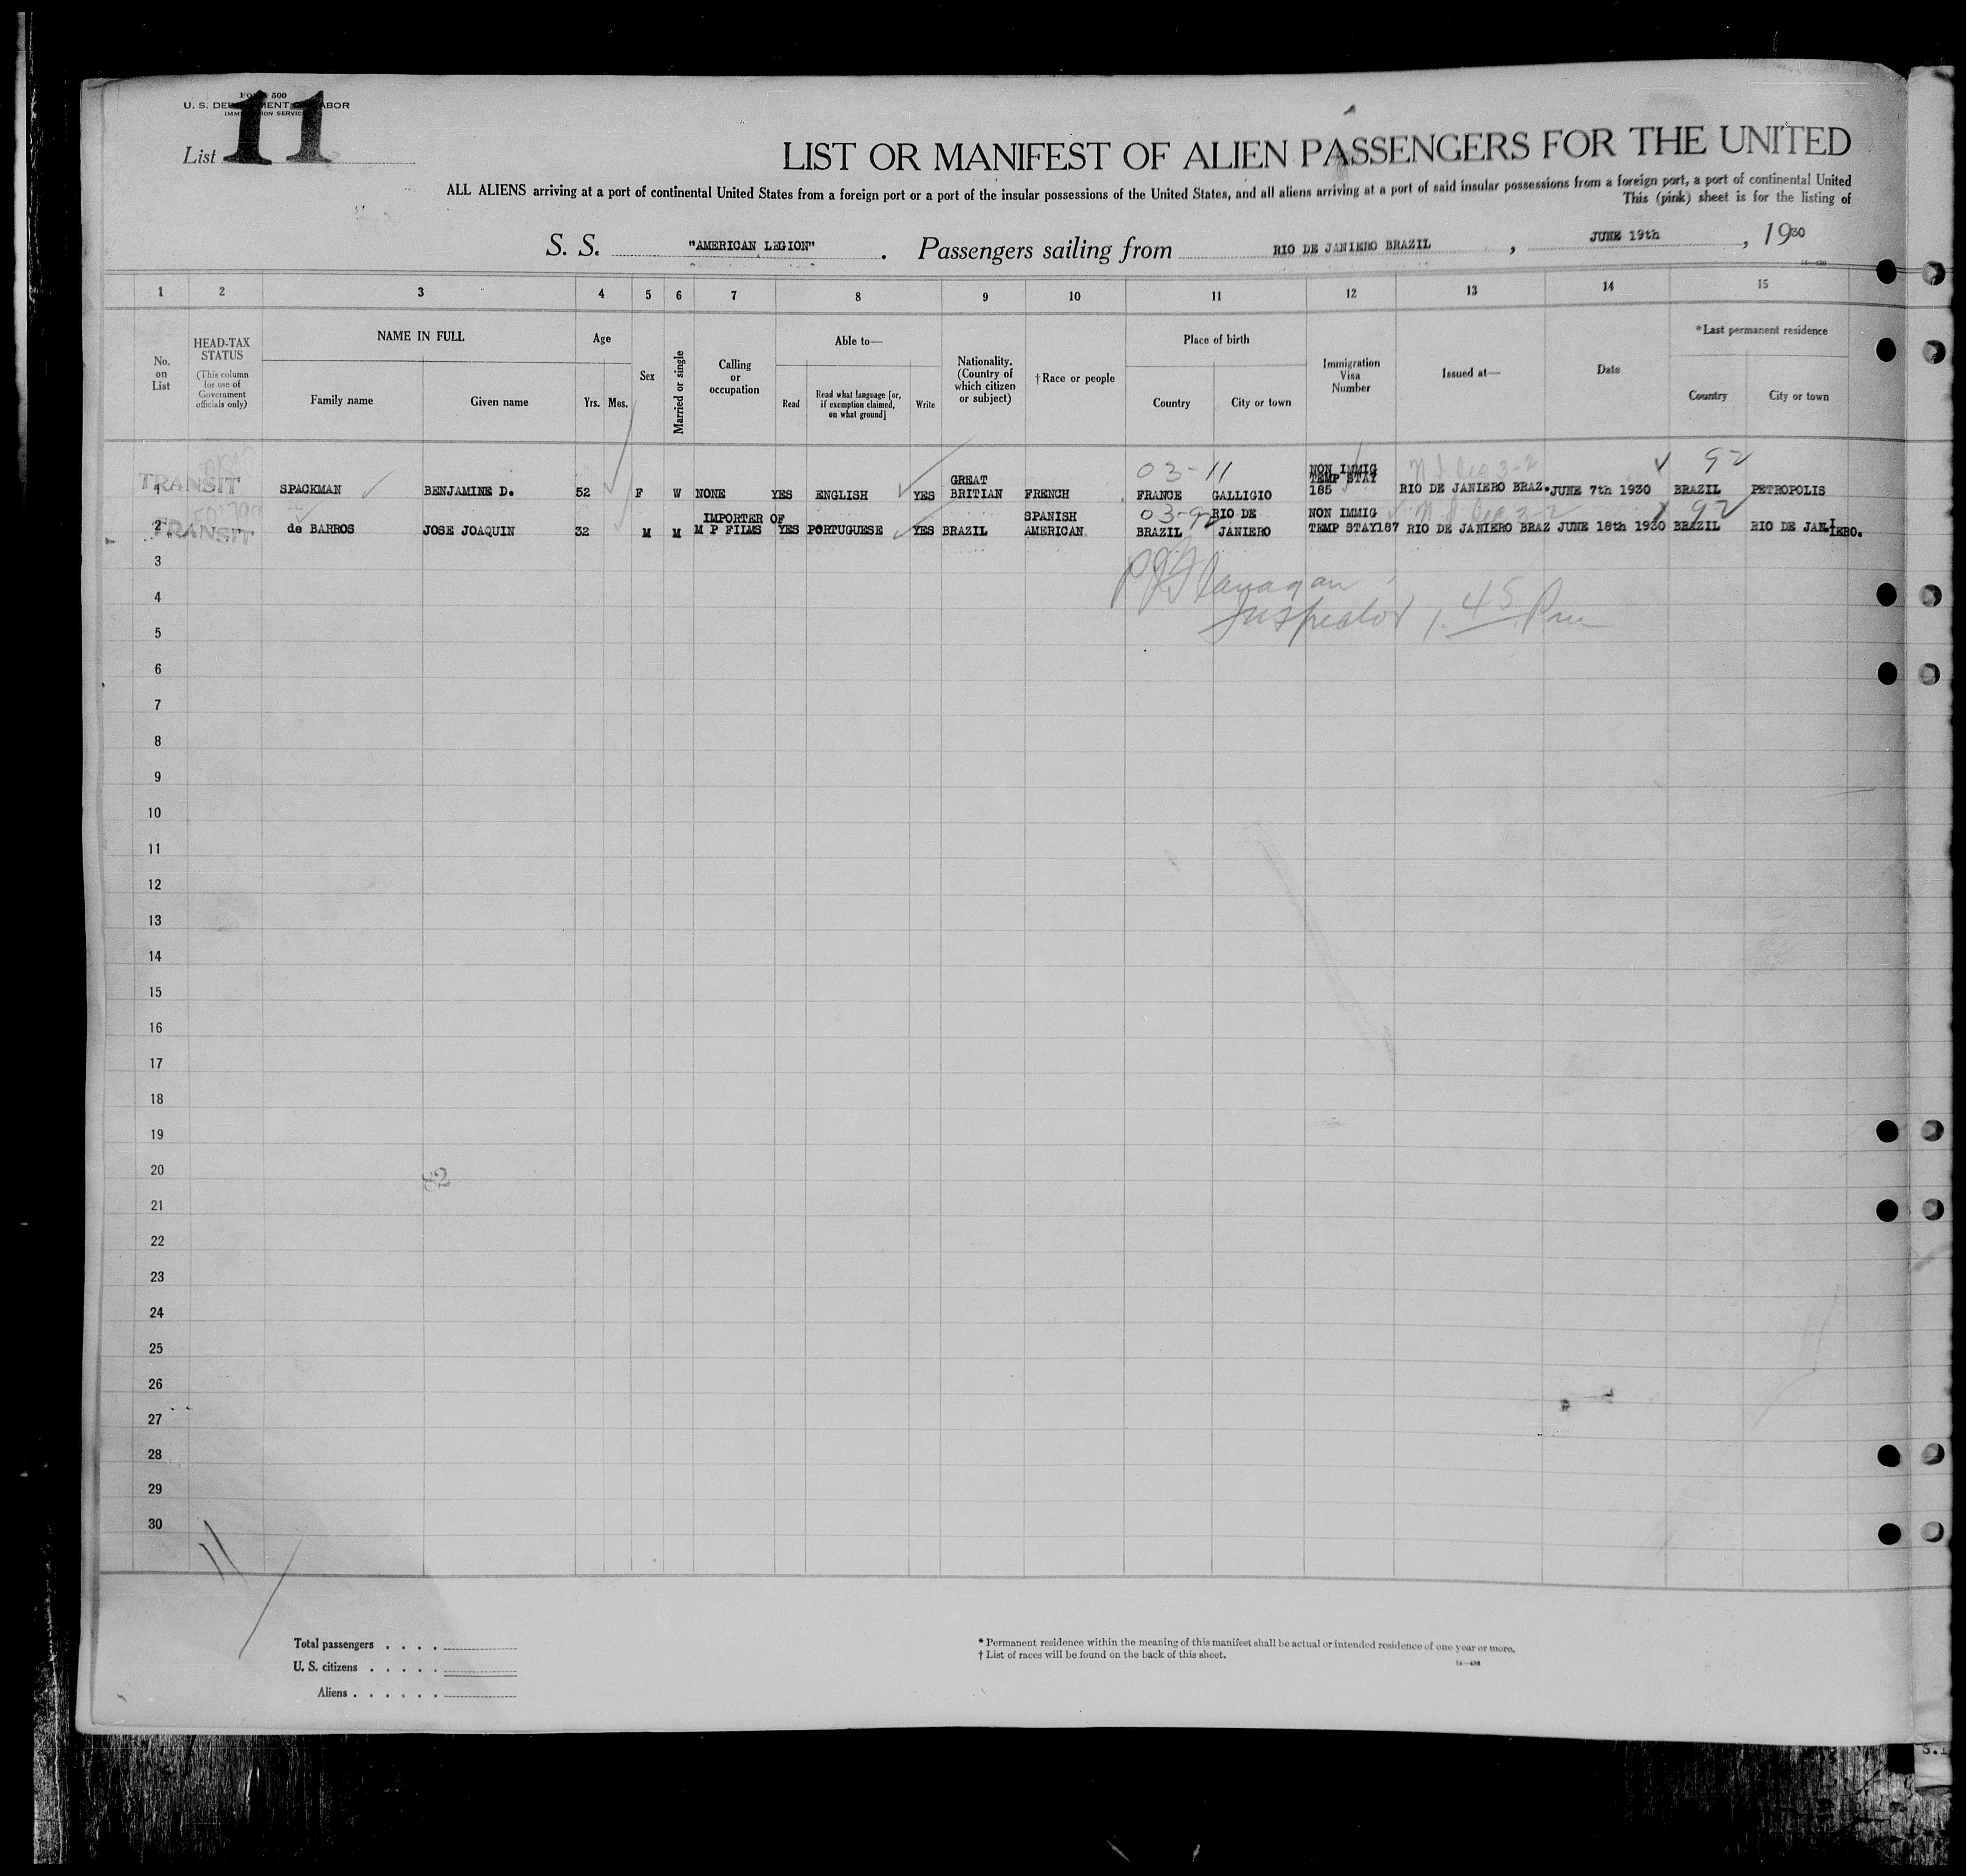 FORM 500
U. S. DEPARTMENT OF LABOR
IMMIGRATION SERVICE
List 11
LIST OR MANIFEST OF ALIEN PASSENGERS FOR THE UNITED
ALL ALIENS arriving at a port of continental United States from a foreign port or a port of the insular possessions of the United States, and all aliens arriving at a port of said insular possessions from a foreign port, a port of continental United
This (pink) sheet is for the listing of
S. S. "AMERICAN LEGION". Passengers sailing from RIO DE JANIERO BRAZIL, JUNE 19th, 1930
1 2 3 4 5 6 7 8 9 10 11 12 13 14 15
No. on List
HEAD-TAX STATUS
(This column for use of Government officials only)
NAME IN FULL
Family name Given name
Age
Yrs. Mos.
Sex
Married or single
Calling or occupation
Able to—
Read
Read what language [or, if exemption claimed, on what ground]
Write
Nationality. (Country of which citizen or subject)
†Race or people
Place of birth
Country City or town
Immigration Visa Number
Issued at—
Date
*Last permanent residence
Country City or town
TRANSIT
03-11 92
1 SPACKMAN BENJAMINE D. 52 F W NONE YES ENGLISH YES GREAT BRITIAN FRENCH FRANCE GALLIGIO NON IMMIG TEMP STAY 185 RIO DE JANIERO BRAZ. JUNE 7th 1930 BRAZIL PETROPOLIS
TRANSIT
03-92 92
2 de BARROS JOSE JOAQUIN 32 M M IMPORTER OF M P FILMS YES PORTUGUESE YES BRAZIL SPANISH AMERICAN BRAZIL RIO DE JANIERO NON IMMIG TEMP STAY187 RIO DE JANIERO BRAZ JUNE 18th 1930 BRAZIL RIO DE JANIERO.
3
P J Flanagan
4
Inspector 1.45 Pm
5
6
7
8
9
10
11
12
13
14
15
16
17
18
19
20
21
22
23
24
25
26
27
28
29
30
11
Total passengers . . . .
U. S. citizens . . . . .
Aliens . . . . . .
* Permanent residence within the meaning of this manifest shall be actual or intended residence of one year or more.
† List of races will be found on the back of this sheet.